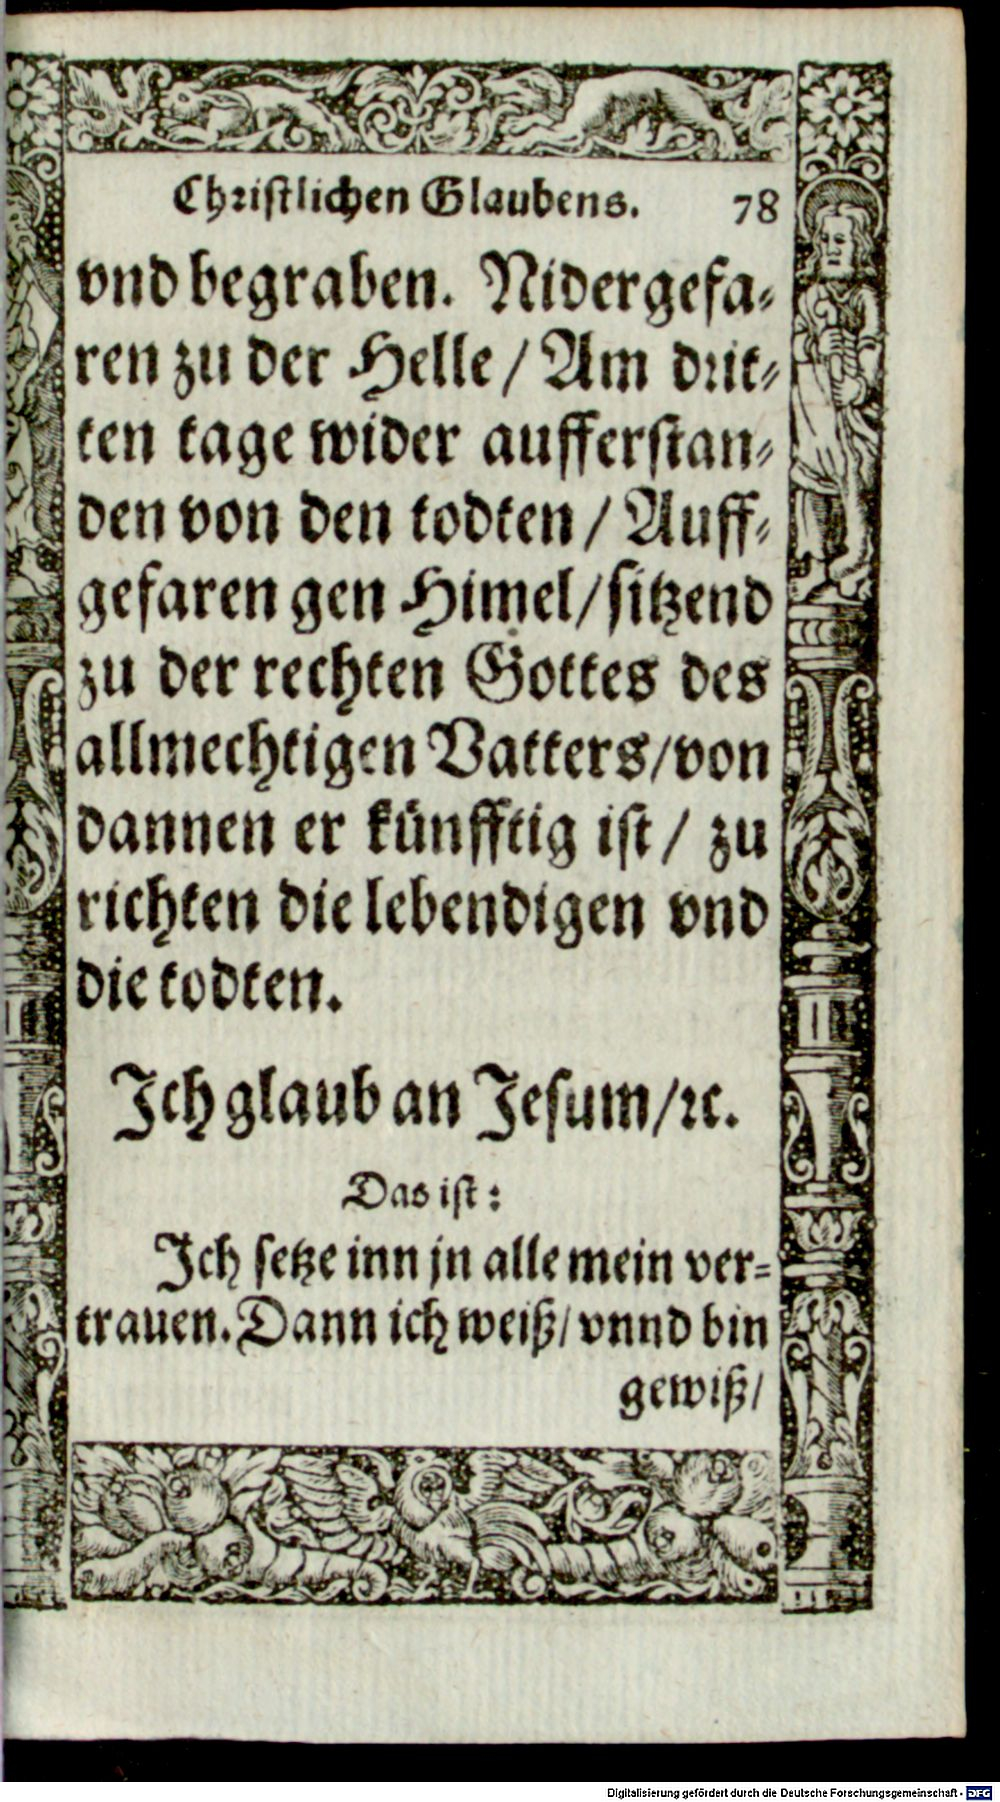 Christlichen Glaubens. 78
vnd begraben. Nidergefa⸗
ren zu der Helle / Am drit⸗
ten tage wider aufferstan⸗
den von den todten / Auff⸗
gefaren gen Himel / sitzend
zu der rechten Gottes des
allmechtigen Vatters / von
dannen er künfftig ist / zu
richten die lebendigen vnd
die todten.
Ich glaub an Jesum / ꝛc.
Das ist:
Ich setze inn jn alle mein ver⸗
trauen. Dann ich weiß / vnnd bin
gewiß /
Digitalisierung gefördert durch die Deutsche Forschungsgemeinschaft - DFG